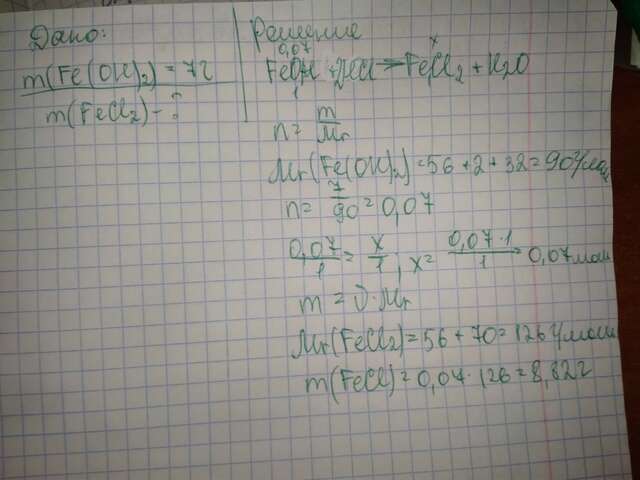 Дано:
m(Fe(OH)2) = 7г
m(FeCl2) - ?
Решение
0,07 x
FeOH + 2HCl = FeCl2 + H2O
1
n = m/Mr
Mr(Fe(OH)2) = 56 + 2 + 32 = 90 г/моль
n = 7/90 = 0,07
0,07/1 = x/1, x = 0,07·1/1 = 0,07 моль
m = ν·Mr
Mr(FeCl2) = 56 + 70 = 126 г/моль
m(FeCl) = 0,07·126 = 8,82г